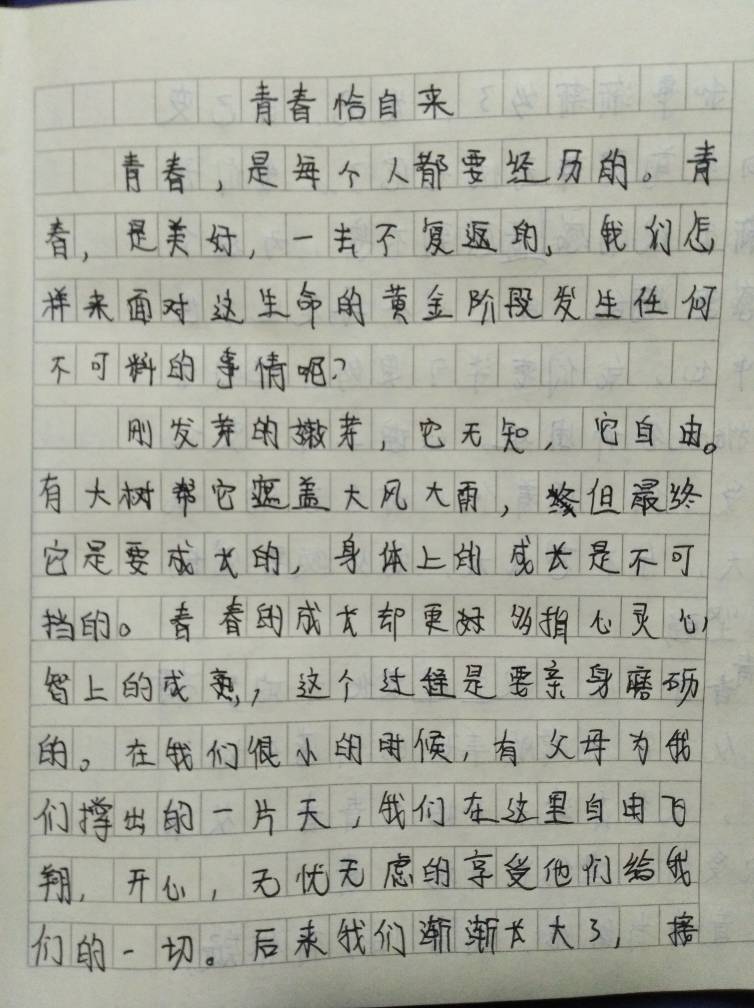 青春恰自来
青春，是每个人都要经历的。青
春，是美好，一去不复返的，我们怎
样来面对这生命的黄金阶段发生任何
不可料的事情呢？
刚发芽的嫩芽，它无知，它自由。
有大树帮它遮盖大风大雨，但最终
它是要成长的，身体上的成长是不可
挡的。青春的成长却更好多指心灵心
智上的成熟，这个过程是要亲身磨砺
的。在我们很小的时候，有父母为我
们撑出的一片天，我们在这里自由飞
翔，开心，无忧无虑的享受他们给我
们的一切。后来我们渐渐长大了，接